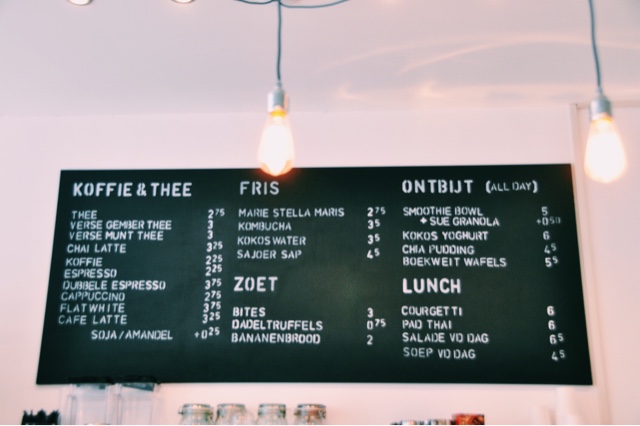 KOFFIE & THEE
THEE 2 75
VERSE GEMBER THEE 3
VERSE MUNT THEE 3
CHAI LATTE 3 25
KOFFIE 2 25
ESPRESSO 2 25
DUBBELE ESPRESSO 3 75
CAPPUCCINO 2 75
FLAT WHITE 3 75
CAFE LATTE 3 25
SOJA/AMANDEL +0 25
FRIS
MARIE STELLA MARIS 2 75
KOMBUCHA 3 5
KOKOS WATER 3 5
SAJOER SAP 4 5
ZOET
BITES 3
DADELTRUFFELS 0 75
BANANENBROOD 2
ONTBIJT (ALL DAY)
SMOOTHIE BOWL 5
+ SUE GRANOLA +0 50
KOKOS YOGHURT 6
CHIA PUDDING 4 5
BOEKWEIT WAFELS 5 5
LUNCH
COURGETTI 6
PAD THAI 6
SALADE VD DAG 6 5
SOEP VD DAG 4 5